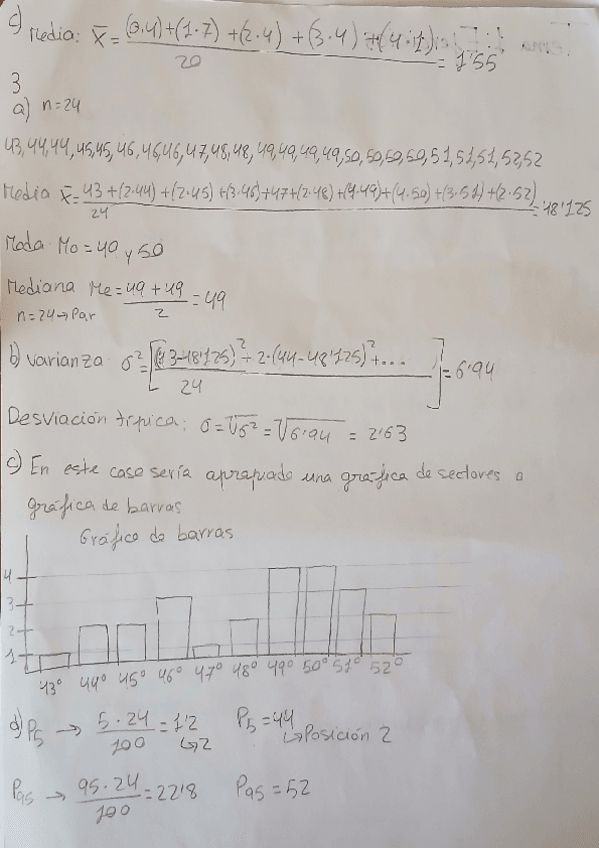 c) Media: X̄ = (0·4)+(1·7)+(2·4)+(3·4)+(4·1) / 20 = 1'55
3
a) n=24
43,44,44,45,45,46,46,46,47,48,48,49,49,49,49,50,50,50,50,51,51,51,52,52
Media X̄ = 43+(2·44)+(2·45)+(3·46)+47+(2·48)+(4·49)+(4·50)+(3·51)+(2·52) / 24 = 48'125
Moda Mo = 40 y 50
Mediana Me = 49+49 / 2 = 49
n=24→Par
b) varianza σ² = [(43-48'125)²+2·(44-48'125)²+... / 24] = 6'94
Desviación típica: σ = √σ² = √6'94 = 2'63
c) En este caso sería apropiado una gráfica de sectores o
gráfica de barras
Gráfico de barras
4
3
2
1
43° 44° 45° 46° 47° 48° 49° 50° 51° 52°
d) P5 → 5·24 / 100 = 1'2 ↳2 P5 = 44 ↳Posición 2
P95 → 95·24 / 100 = 22'8 P95 = 52